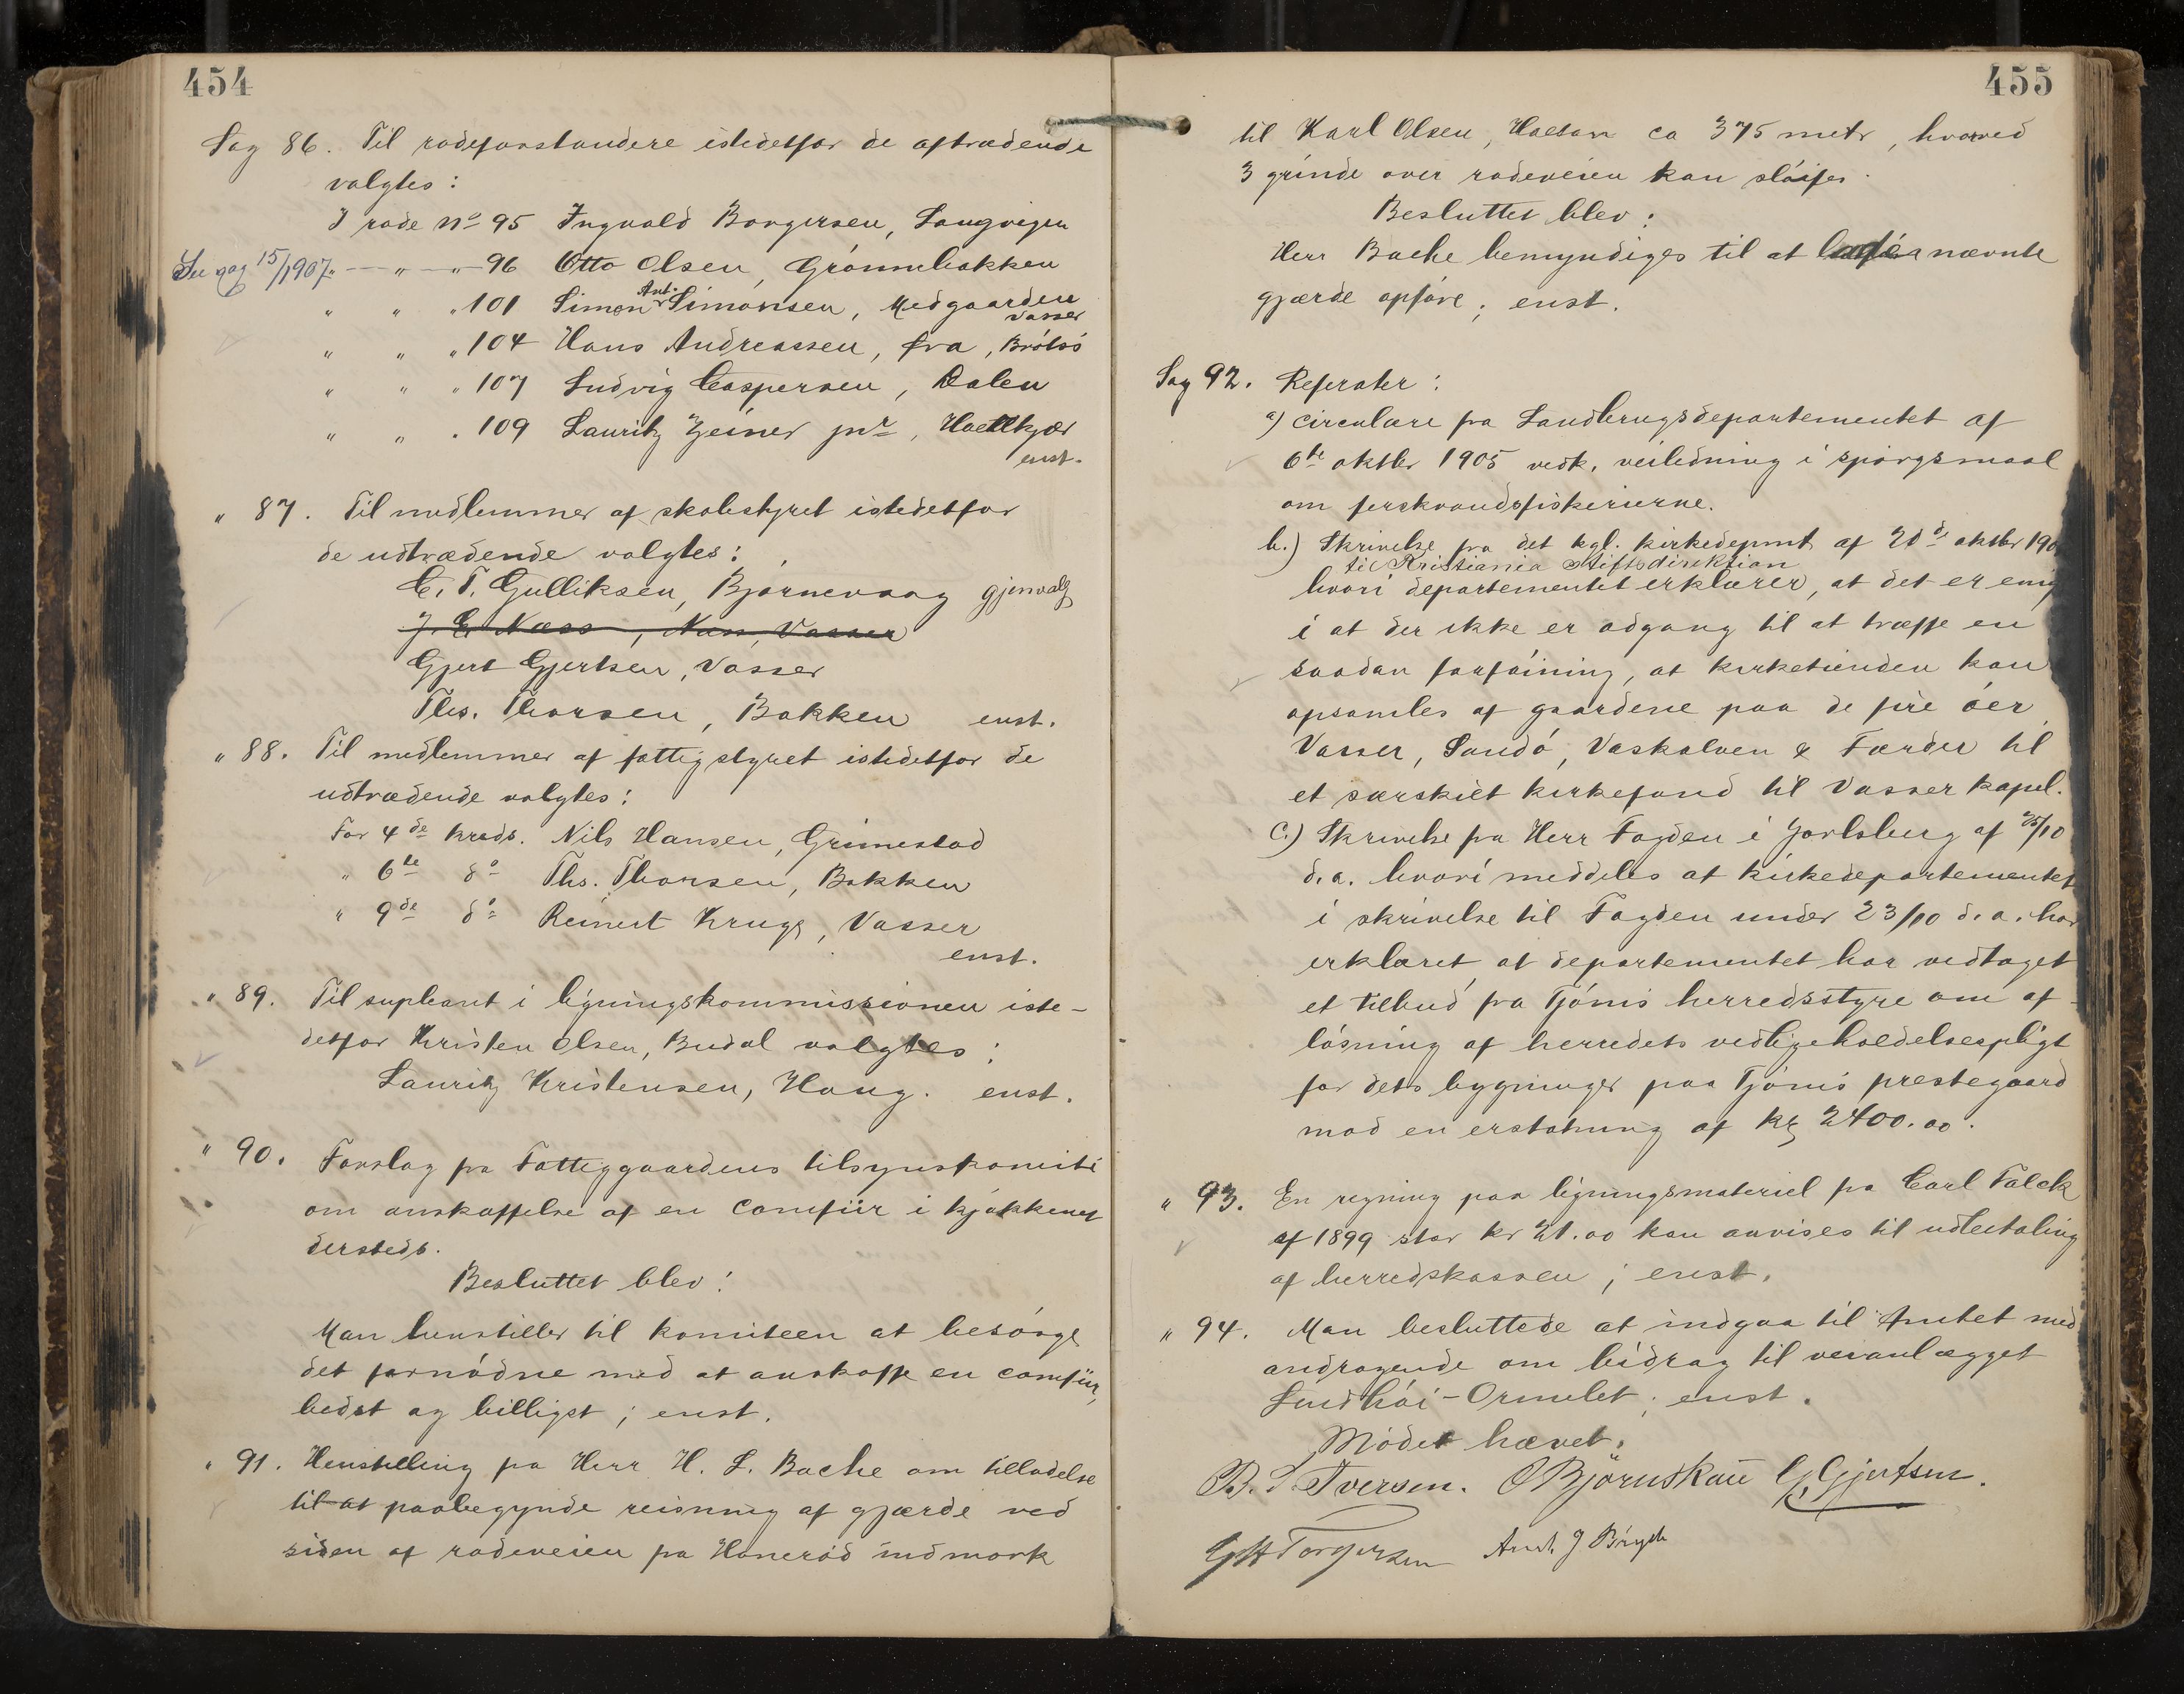 454
Sag 86. Til rodeforstandere istedetfor de aftrædende
valgtes:
I rode No 95 Ingvald Borgersen, Langvigen
Se sag 15/1907 " — " — " 96 Otto Olsen, Grönnebakken
" " " 101 Simon Ant. Simonsen, Medgaarden
Vasser
" " " 104 Hans Andreassen, fra, Brötsö
" " " 107 Ludvig Caspersen, Dalen
" " " 109 Lauritz Zeiner jnr, Hoelkjær
enst.
" 87. Til medlemmer af skolestyret istedetfor
de udtrædende valgtes:
C. T. Gulliksen, Bjørnevaag gjenvalg
J. E. Næss, Næs, Vasser
Gjert Gjertsen, Vasser
Ths. Thorsen, Bakken enst.
" 88. Til medlemmer af fattigstyret istedetfor de
udtrædende valgtes:
For 4de kreds. Nils Hansen, Grimestad
" 6te do Ths. Thorsen, Bakken
" 9de do Reinert Kruge, Vasser
enst.
" 89. Til supleant i ligningskommissionen iste-
detfor Kristen Olsen, Budal valgtes:
Lauritz Kristensen, Haug. enst.
" 90. Forslag fra Fattiggaardens tilsynskomite
om anskaffelse af en comfür i kjökkenet
dersteds.
Besluttet blev:
Man henstiller til komiteen at besörge
det fornödne med at anskaffe en comfür,
bedst og billigst; enst.
" 91. Henstilling fra Herr H. L. Bache om tilladelse
til at paabegynde reisning af gjærde ved
siden af rodeveien fra Honeröd indmark
455
til Karl Olsen, Holtan ca 375 metr, hvorved
3 grinde over rodeveien kan slöifes.
Besluttet blev:
Herr Bache bemyndiges til at lade nævnte
gjærde opföre; enst.
Sag 92. Referater:
a) Circulære fra Landbrugsdepartementet af
6te oktbr 1905 vedk. veiledning i spörgsmaal
om ferskvandsfiskerierne.
b.) Skrivelse fra det kgl. kirkedepmt af 20de oktbr 190
til Kristiania Stiftsdirektion
hvori departementet erklærer, at det er enig
i at der ikke er adgang til at træffe en
saadan forföining, at kirketienden kan
opsamles af gaardene paa de fire öer
Vasser, Sandö, Vaskalven & Færder til
et særskilt kirkefond til Vasser kapel.
C.) Skrivelse fra Herr Fogden i Jarlsberg af 25/10
d.a. hvori meddeles at kirkedepartementet
i skrivelse til Fogden under 23/10 d.a. har
erklæret at departementet har vedtaget
et tilbud fra Tjömö herredsstyre om af-
lösning af herredets vedligeholdelsespligt
for dets bygninger paa Tjömö prestegaard
mod en erstatning af kr 2400.00.
" 93. En regning paa ligningsmateriel fra Carl Falck
af 1899 stor kr 21.00 kan anvises til udbetaling
af herredskassen; enst.
" 94. Man besluttede at indgaa til Amtet med
andragende om bidrag til veianlægget
Lindhöi-Ormelet; enst.
Mödet hævet.
B. S. Iversen. O Björnskau G. Gjertsen.
G H Torgersen Anth J Bryde